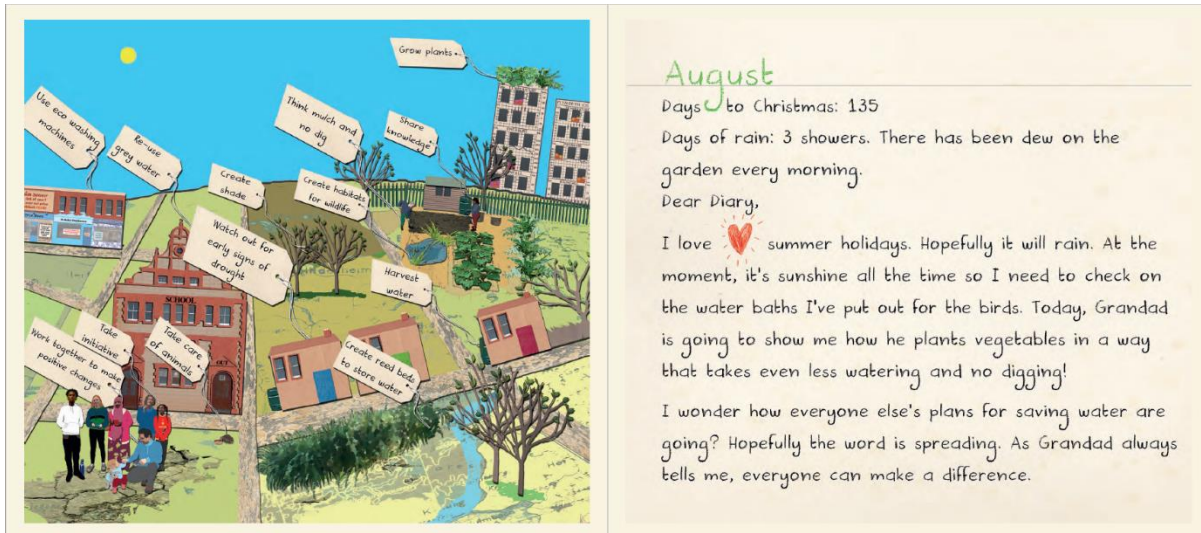 Grow plants
Use eco washing
machines
Re-use
grey water
Think mulch and
no dig
Share
knowledge
Create
shade
Create habitats
for wildlife
Watch out for
early signs of
drought
Harvest
water
SCHOOL
Take
initiative
Take care
of animals
Work together to make
positive changes
Create reed beds
to store water
August
Days to Christmas: 135
Days of rain: 3 showers. There has been dew on the
garden every morning.
Dear Diary,
I love summer holidays. Hopefully it will rain. At the
moment, it's sunshine all the time so I need to check on
the water baths I've put out for the birds. Today, Grandad
is going to show me how he plants vegetables in a way
that takes even less watering and no digging!
I wonder how everyone else's plans for saving water are
going? Hopefully the word is spreading. As Grandad always
tells me, everyone can make a difference.